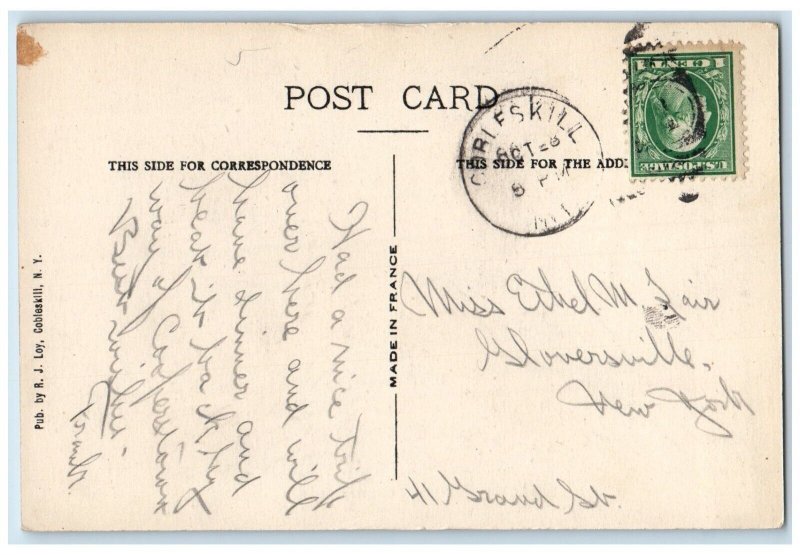 POST CARD
THIS SIDE FOR CORRESPONDENCE
THIS SIDE FOR THE ADD
COBLESKILL
OCT 28
5 PM
N.Y.
U.S. POSTAGE
1 CENT 1
MADE IN FRANCE
Pub. by R. J. Loy, Cobleskill, N. Y.
Had a nice trip
over here and will
have dinner and
beat it back by
way of Cooperstown
Best wishes.
Frank.
Miss Ethel M. Lair
Gloversville,
New York
41 Grand St.